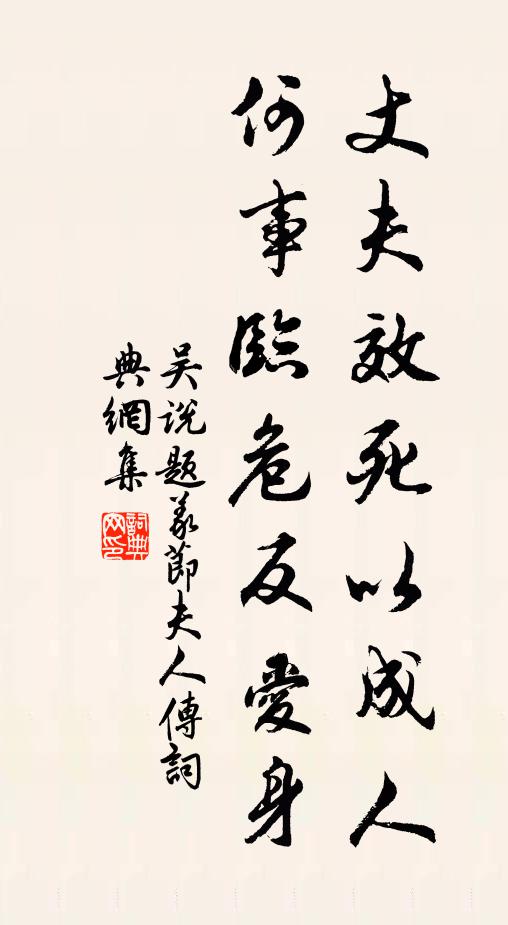 丈夫效死以成人
何事臨危反愛身
吴说題義節夫人傳詞
典網集
詞典網印